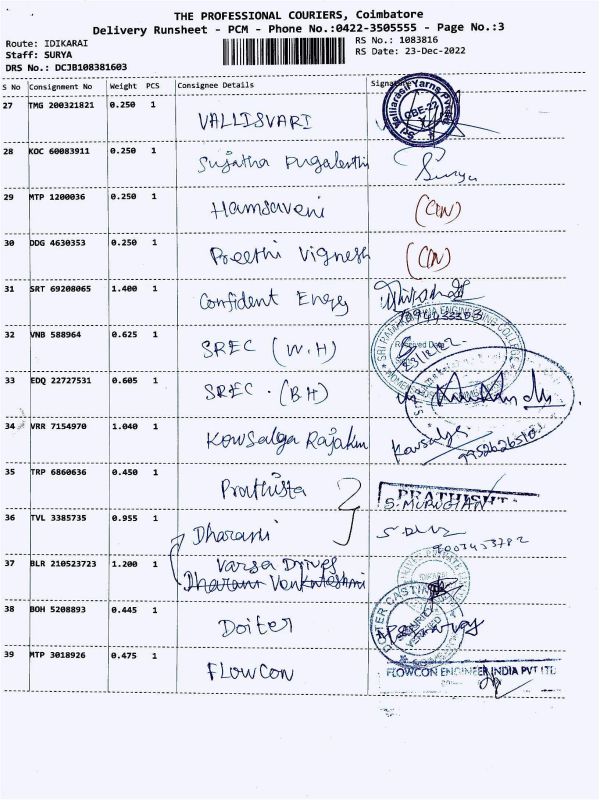 THE PROFESSIONAL COURIERS, Coimbatore
Delivery Runsheet - PCM - Phone No.:0422-3505555 - Page No.:3
Route: IDIKARAI
Staff: SURYA
DRS No.: DCJB108381603
RS No.: 1083816
RS Date: 23-Dec-2022
S No Consignment No Weight PCS Consignee Details Signature
27 TMG 200321821 0.250 1 VALLISVARI
28 KOC 60083911 0.250 1 Sujatha Pugalenthi Surya
29 MTP 1200036 0.250 1 Hamsaveni
30 DDG 4630353 0.250 1 Preethi Vignesh
31 SRT 69208065 1.400 1 Confident Energy
32 VNB 588964 0.625 1 SREC (W.H) 23/12/22
33 EDQ 22727531 0.605 1 SREC. (BH)
34 VRR 7154970 1.040 1 Kowsalya Rajakum Kowsalya
35 TRP 6860636 0.450 1 Prathista PRATHISHT S. MURUGIAN
36 TVL 3385735 0.955 1 Dharani 9003453782
37 BLR 210523723 1.200 1 Varsa Drives
38 BOH 5208893 0.445 1 Doiter
39 MTP 3018926 0.475 1 FLOWCON FLOWCON ENGINEER INDIA PVT LTD